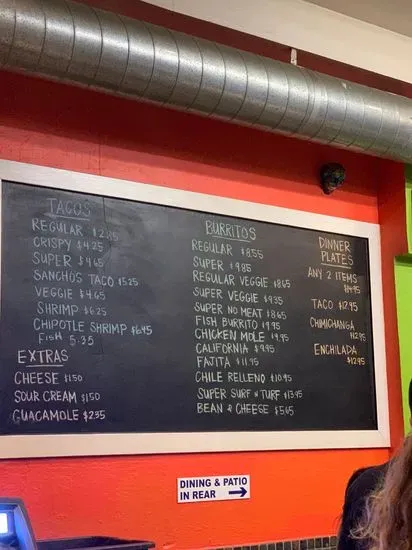 TACOS
REGULAR $2.85
CRISPY $4.25
SUPER $4.65
SANCHOS TACO $5.25
VEGGIE $4.65
SHRIMP $6.25
CHIPOTLE SHRIMP $6.45
FISH 5.35
EXTRAS
CHEESE $1.50
SOUR CREAM $1.50
GUACAMOLE $2.35
BURRITOS
REGULAR $8.55
SUPER $9.85
REGULAR VEGGIE $8.65
SUPER VEGGIE $9.35
SUPER NO MEAT $8.65
FISH BURRITO $9.95
CHICKEN MOLE $9.95
CALIFORNIA $9.95
FAJITA $11.95
CHILE RELLENO $10.95
SUPER SURF N TURF $13.95
BEAN & CHEESE $5.65
DINNER
PLATES
ANY 2 ITEMS
$14.95
TACO $12.95
CHIMICHANGA
$12.95
ENCHILADA
$12.95
DINING & PATIO
IN REAR